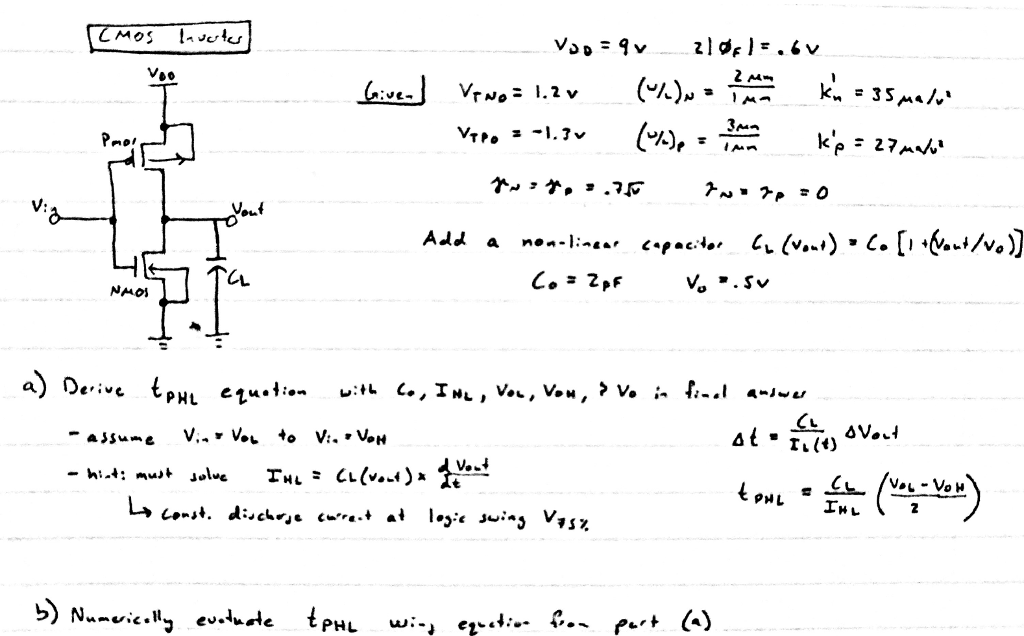 CMOS Inverter
VDD = 9v 2|ØF| = .6v
Given VTNO = 1.2v (W/L)N = 2μm/1μm k'n = 35μa/v²
VTPO = -1.3v (W/L)p = 3μm/1μm k'p = 27μa/v²
γN = γp = .7√v λN = λp = 0
Add a non-linear capacitor CL(Vout) = Co[1+(Vout/Vo)]
Co = 2pF Vo = .5v
VDD
Pmos
Vin
Vout
NMOS
CL
a) Derive tPHL equation with Co, IHL, VOL, VOH, & Vo in final answer
- assume Vin = VOL to Vin = VOH
- hint: must solve IHL = CL(Vout) x dVout/dt
↳ const. discharge current at logic swing V75%
Δt = CL/IL(t) ΔVout
tPHL = CL/IHL (VOL - VOH/2)
b) Numerically evaluate tPHL using equation from part (a)